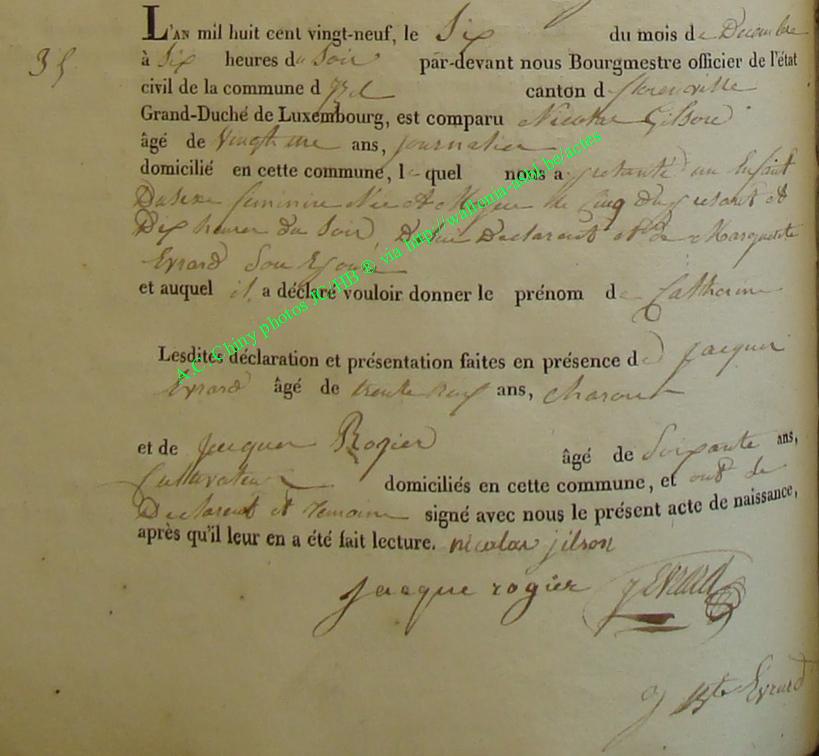 35
L'AN mil huit cent vingt-neuf, le Six du mois de Decembre
à Six heures du Soir par-devant nous Bourgmestre officier de l'état
civil de la commune d'Izel canton de florenville
Grand-Duché de Luxembourg, est comparu Nicolas Gilson
âgé de Vingt ans, journalier
domicilié en cette commune, le quel nous a presenté un Enfant
Du sexe feminin Née le Cinq du present et
Dix heures du Soir De lui Declarant et de Marguerite
Evrard Son Epouse
et auquel il a déclaré vouloir donner le prénom de Catherine
Lesdites déclaration et présentation faites en présence de Jacques
Evrard âgé de trente neuf ans, charon
et de Jacques Rogier âgé de Soixante ans,
Cultivateur domiciliés en cette commune, et ont de
Declarant et temoins signé avec nous le présent acte de naissance,
après qu'il leur en a été fait lecture. nicolas jilson
jacque rogier J EVRARD
J Bte Evrard
A.C. Chiny photos JC HB ® via http://wallonia-asbl.be/actes